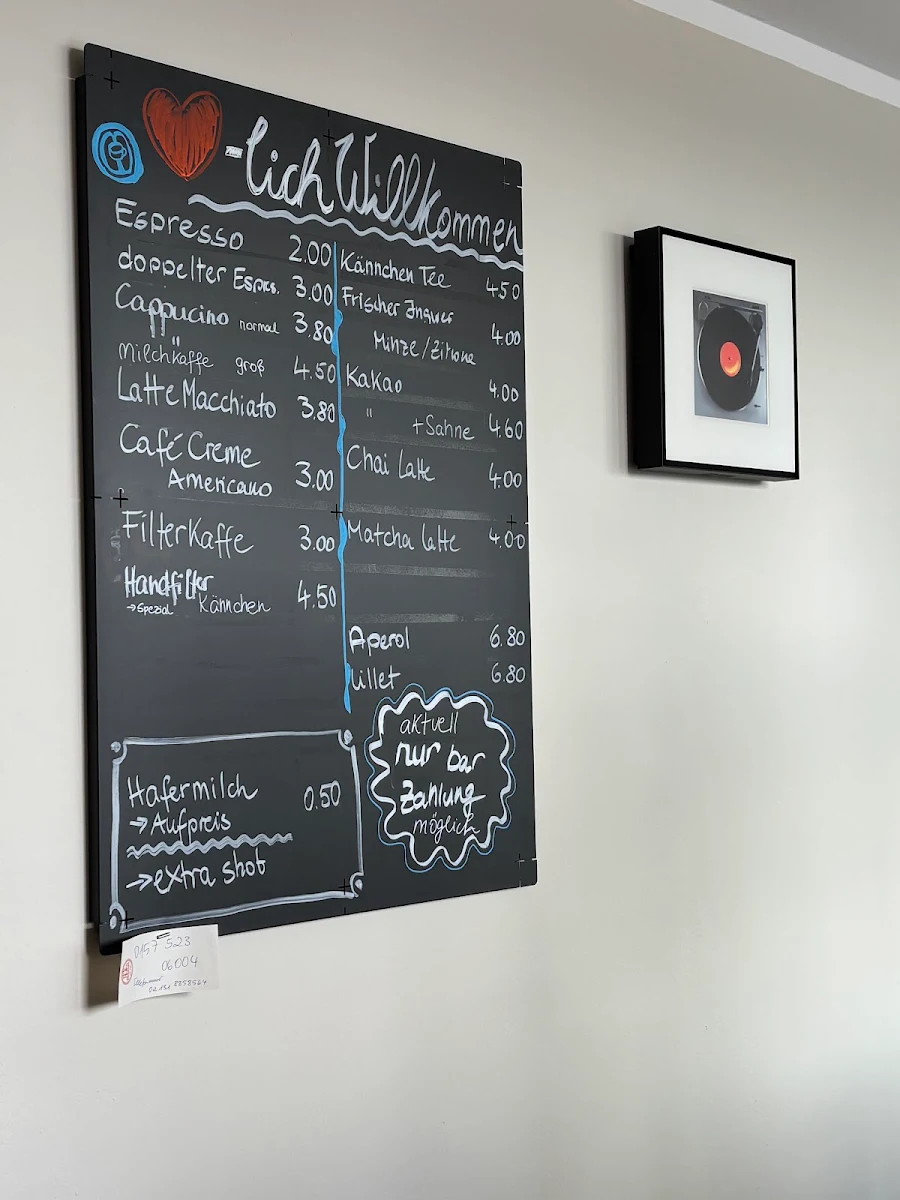 -lich Willkommen
Espresso 2.00
doppelter Espres. 3.00
Cappucino normal 3.80
" 
milchkaffe groß 4.50
Latte Macchiato 3.80
Café Creme
Americano 3.00
Filterkaffe 3.00
Handfilter
→Spezial Kännchen 4.50
Kännchen Tee 4.50
Frischer Ingwer
Minze/Zitrone 4.00
Kakao 4.00
" +Sahne 4.60
Chai Latte 4.00
Matcha latte 4.00
Aperol 6.80
Lillet 6.80
Hafermilch 0.50
→Aufpreis
→extra shot
aktuell
nur bar
Zahlung
möglich
0157 523
06004